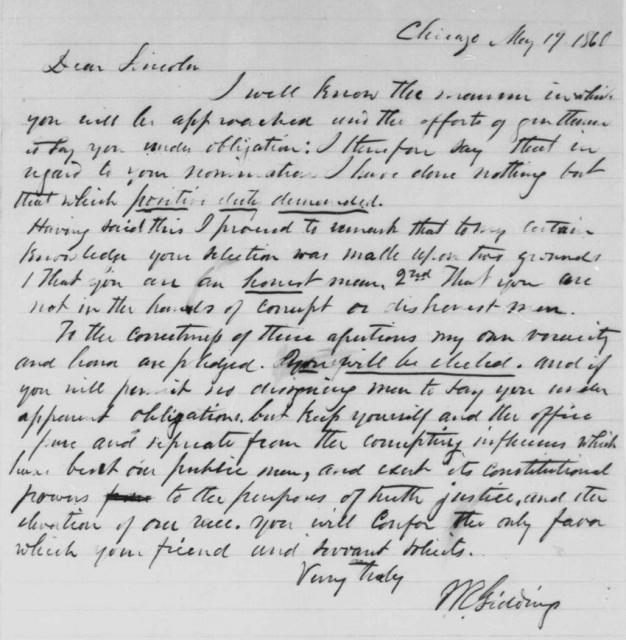 Chicago May 19 1860
Dear Lincoln
I well know the manner in which
you will be approached and the efforts of gentlemen
to lay you under obligation: I therefore say that in
regard to your nomination I have done nothing but
that which positive duty demanded.
Having said this I proceed to remark that to my certain
knowledge your selection was made upon two grounds
1 That you are an honest man, 2nd That you are
not in the hands of corrupt or dishonest men.
To the correctness of these assertions my own veracity
and honor are pledged. You will be elected. and if
you will permit no designing men to lay you under
apparent obligations, but keep yourself and the office
pure and separate from the corrupting influences which
have beset our public men, and exert its constitutional
powers to the purposes of truth justice, and the
elevation of our race. you will confer the only favor
which your friend and servant solicits.
Very truly
Giddings